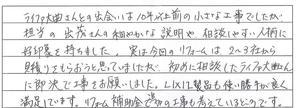 ライフ大曲さんとの出会いは10年以上前の小さな工事でしたが
担当の出茂さんの細やかな説明や相談しやすい人柄に
好印象を持ちました。実は今回のリフォームは2〜3社から
見積りをもらおうと思いましたが、初めに相談したライフ大曲さん
に即決で工事をお願いしました。LIXIL製品も使い勝手が良く
満足しています。リフォーム補助金で次の工事も考えているところです。